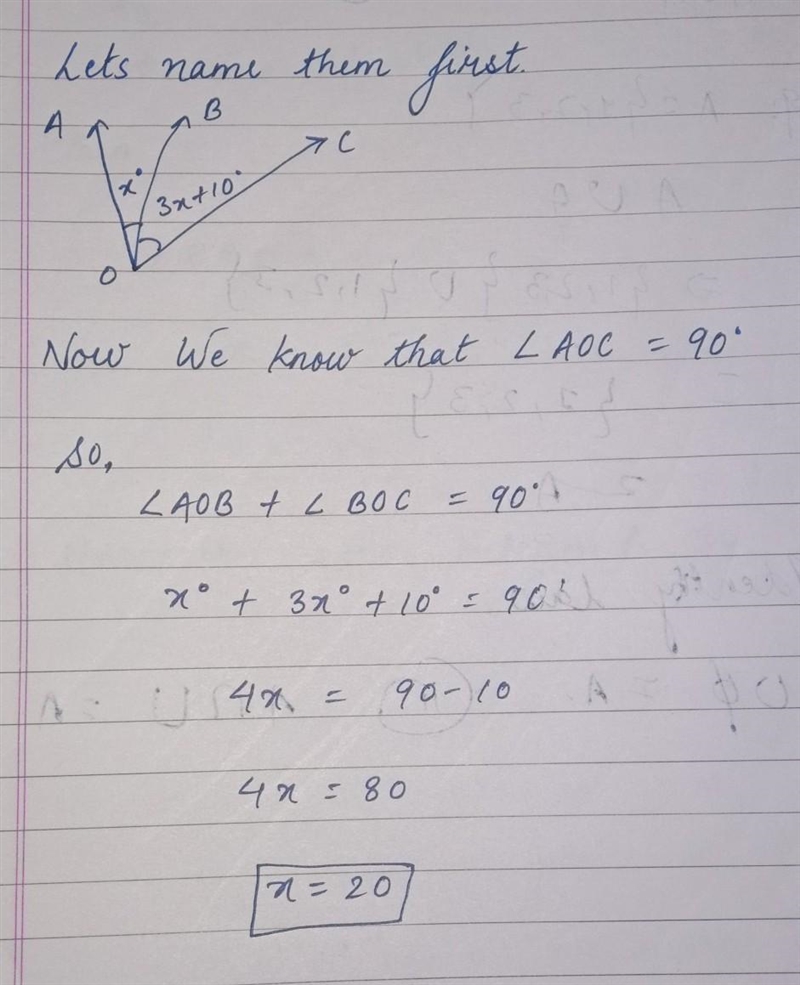 Lets name them first.
A B C
x° 3x+10°
O
Now We know that ∠AOC = 90°
So,
∠AOB + ∠BOC = 90°
x° + 3x° + 10° = 90°
4x = 90-10
4x = 80
x = 20